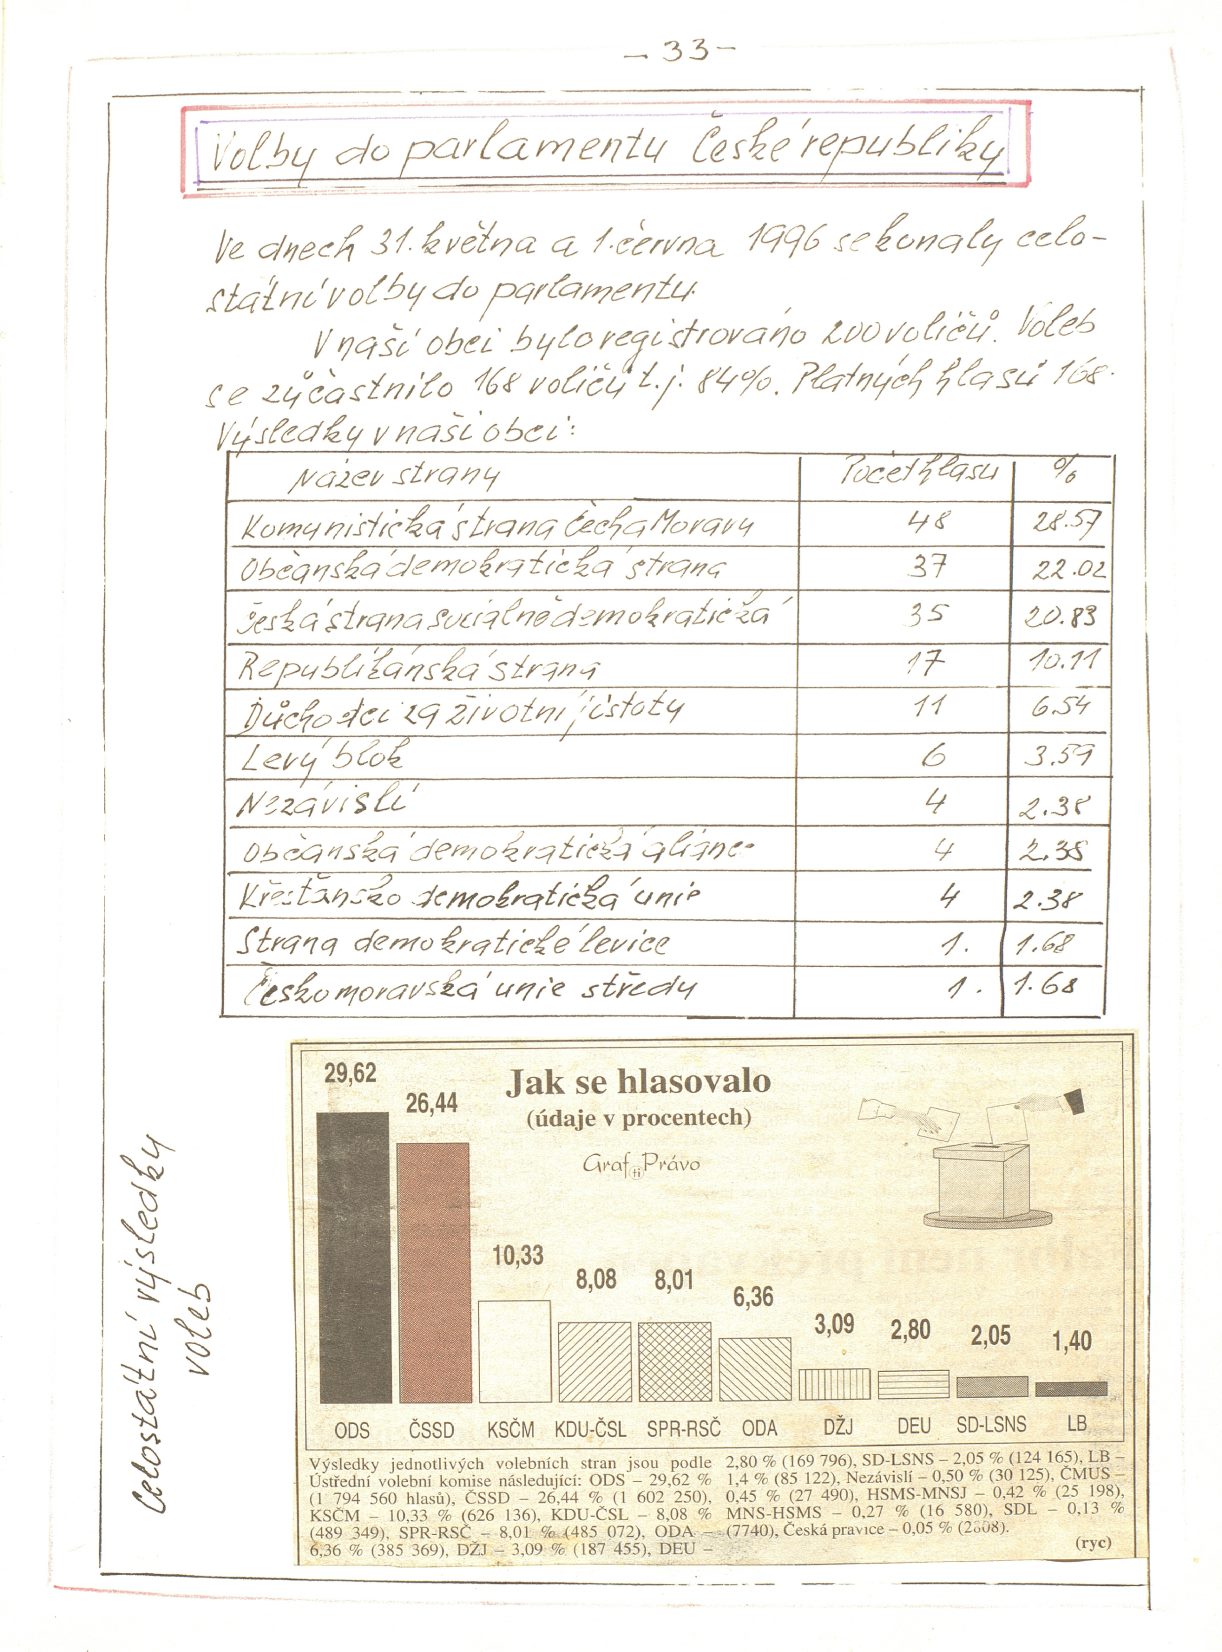 – 33 –
Volby do parlamentu České republiky
Ve dnech 31. května a 1. června 1996 se konaly celo-
státní volby do parlamentu.
V naší obci bylo registrováno 200 voličů. Voleb
se zúčastnilo 168 voličů t.j. 84%. Platných hlasů 168.
Výsledky v naší obci:
Název strany Počet hlasu %
Komunistická strana Čech a Moravy 48 28.57
Občanská demokratická strana 37 22.02
Česká strana sociálně demokratická 35 20.83
Republikánská strana 17 10.11
Důchodci za životní jistoty 11 6.54
Levý blok 6 3.59
Nezávislí 4 2.38
Občanská demokratická aliance 4 2.38
Křesťansko demokratická unie 4 2.38
Strana demokratické levice 1. 1.68
Českomoravská unie středu 1. 1.68
Celostátní výsledky
voleb
Jak se hlasovalo
(údaje v procentech)
Graf ti Právo
29,62
26,44
10,33
8,08
8,01
6,36
3,09
2,80
2,05
1,40
ODS ČSSD KSČM KDU-ČSL SPR-RSČ ODA DŽJ DEU SD-LSNS LB
Výsledky jednotlivých volebních stran jsou podle
Ústřední volební komise následující: ODS – 29,62 %
(1 794 560 hlasů), ČSSD – 26,44 % (1 602 250),
KSČM – 10,33 % (626 136), KDU-ČSL – 8,08 %
(489 349), SPR-RSČ – 8,01 % (485 072), ODA –
6,36 % (385 369), DŽJ – 3,09 % (187 455), DEU –
2,80 % (169 796), SD-LSNS – 2,05 % (124 165), LB –
1,4 % (85 122), Nezávislí – 0,50 % (30 125), ČMUS –
0,45 % (27 490), HSMS-MNSJ – 0,42 % (25 198),
MNS-HSMS – 0,27 % (16 580), SDL – 0,13 %
(7740), Česká pravice – 0,05 % (2808).
(ryc)